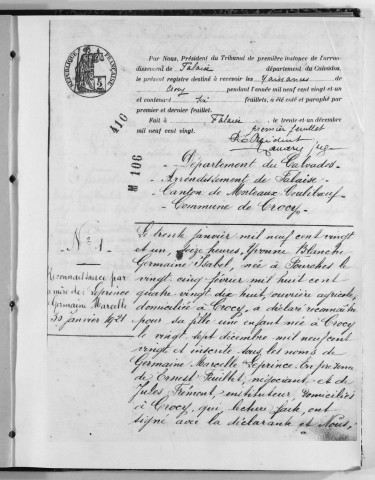 RÉPUBLIQUE FRANÇAISE
Par Nous, Président du Tribunal de première instance de l'arron-
dissement de Falaise département du Calvados,
le présent registre destiné à recevoir les Naissances de
Crocy pendant l'année mil neuf cent vingt et un
et contenant six feuillets, a été coté et paraphé par
premier et dernier feuillet.
Fait à Falaise, le trente et un décembre
mil neuf cent vingt.
premier feuillet
Le Président
410
M 106
Département du Calvados
Arrondissement de Falaise
Canton de Morteaux-Coulibœuf
Commune de Crocy
N° 1
Reconnaissance par
Leprince
Germaine Marcelle
30 janvier 1921
Le trente janvier mil neuf cent vingt
et un, seize heures, Yvonne Blanche
Germaine Isabel, née à Fourches le
vingt cinq février mil huit cent
quatre vingt dix huit, ouvrière agricole,
domiciliée à Crocy, a déclaré reconnaître
pour sa fille une enfant née à Crocy
le vingt sept décembre mil neuf cent
vingt et inscrite sous les noms de
Germaine Marcelle Leprince. En présence
de Ernest Feuillet, négociant, et de
Jules Frémont, instituteur, domiciliés
à Crocy, qui, lecture faite, ont
signé avec la déclarante et Nous,